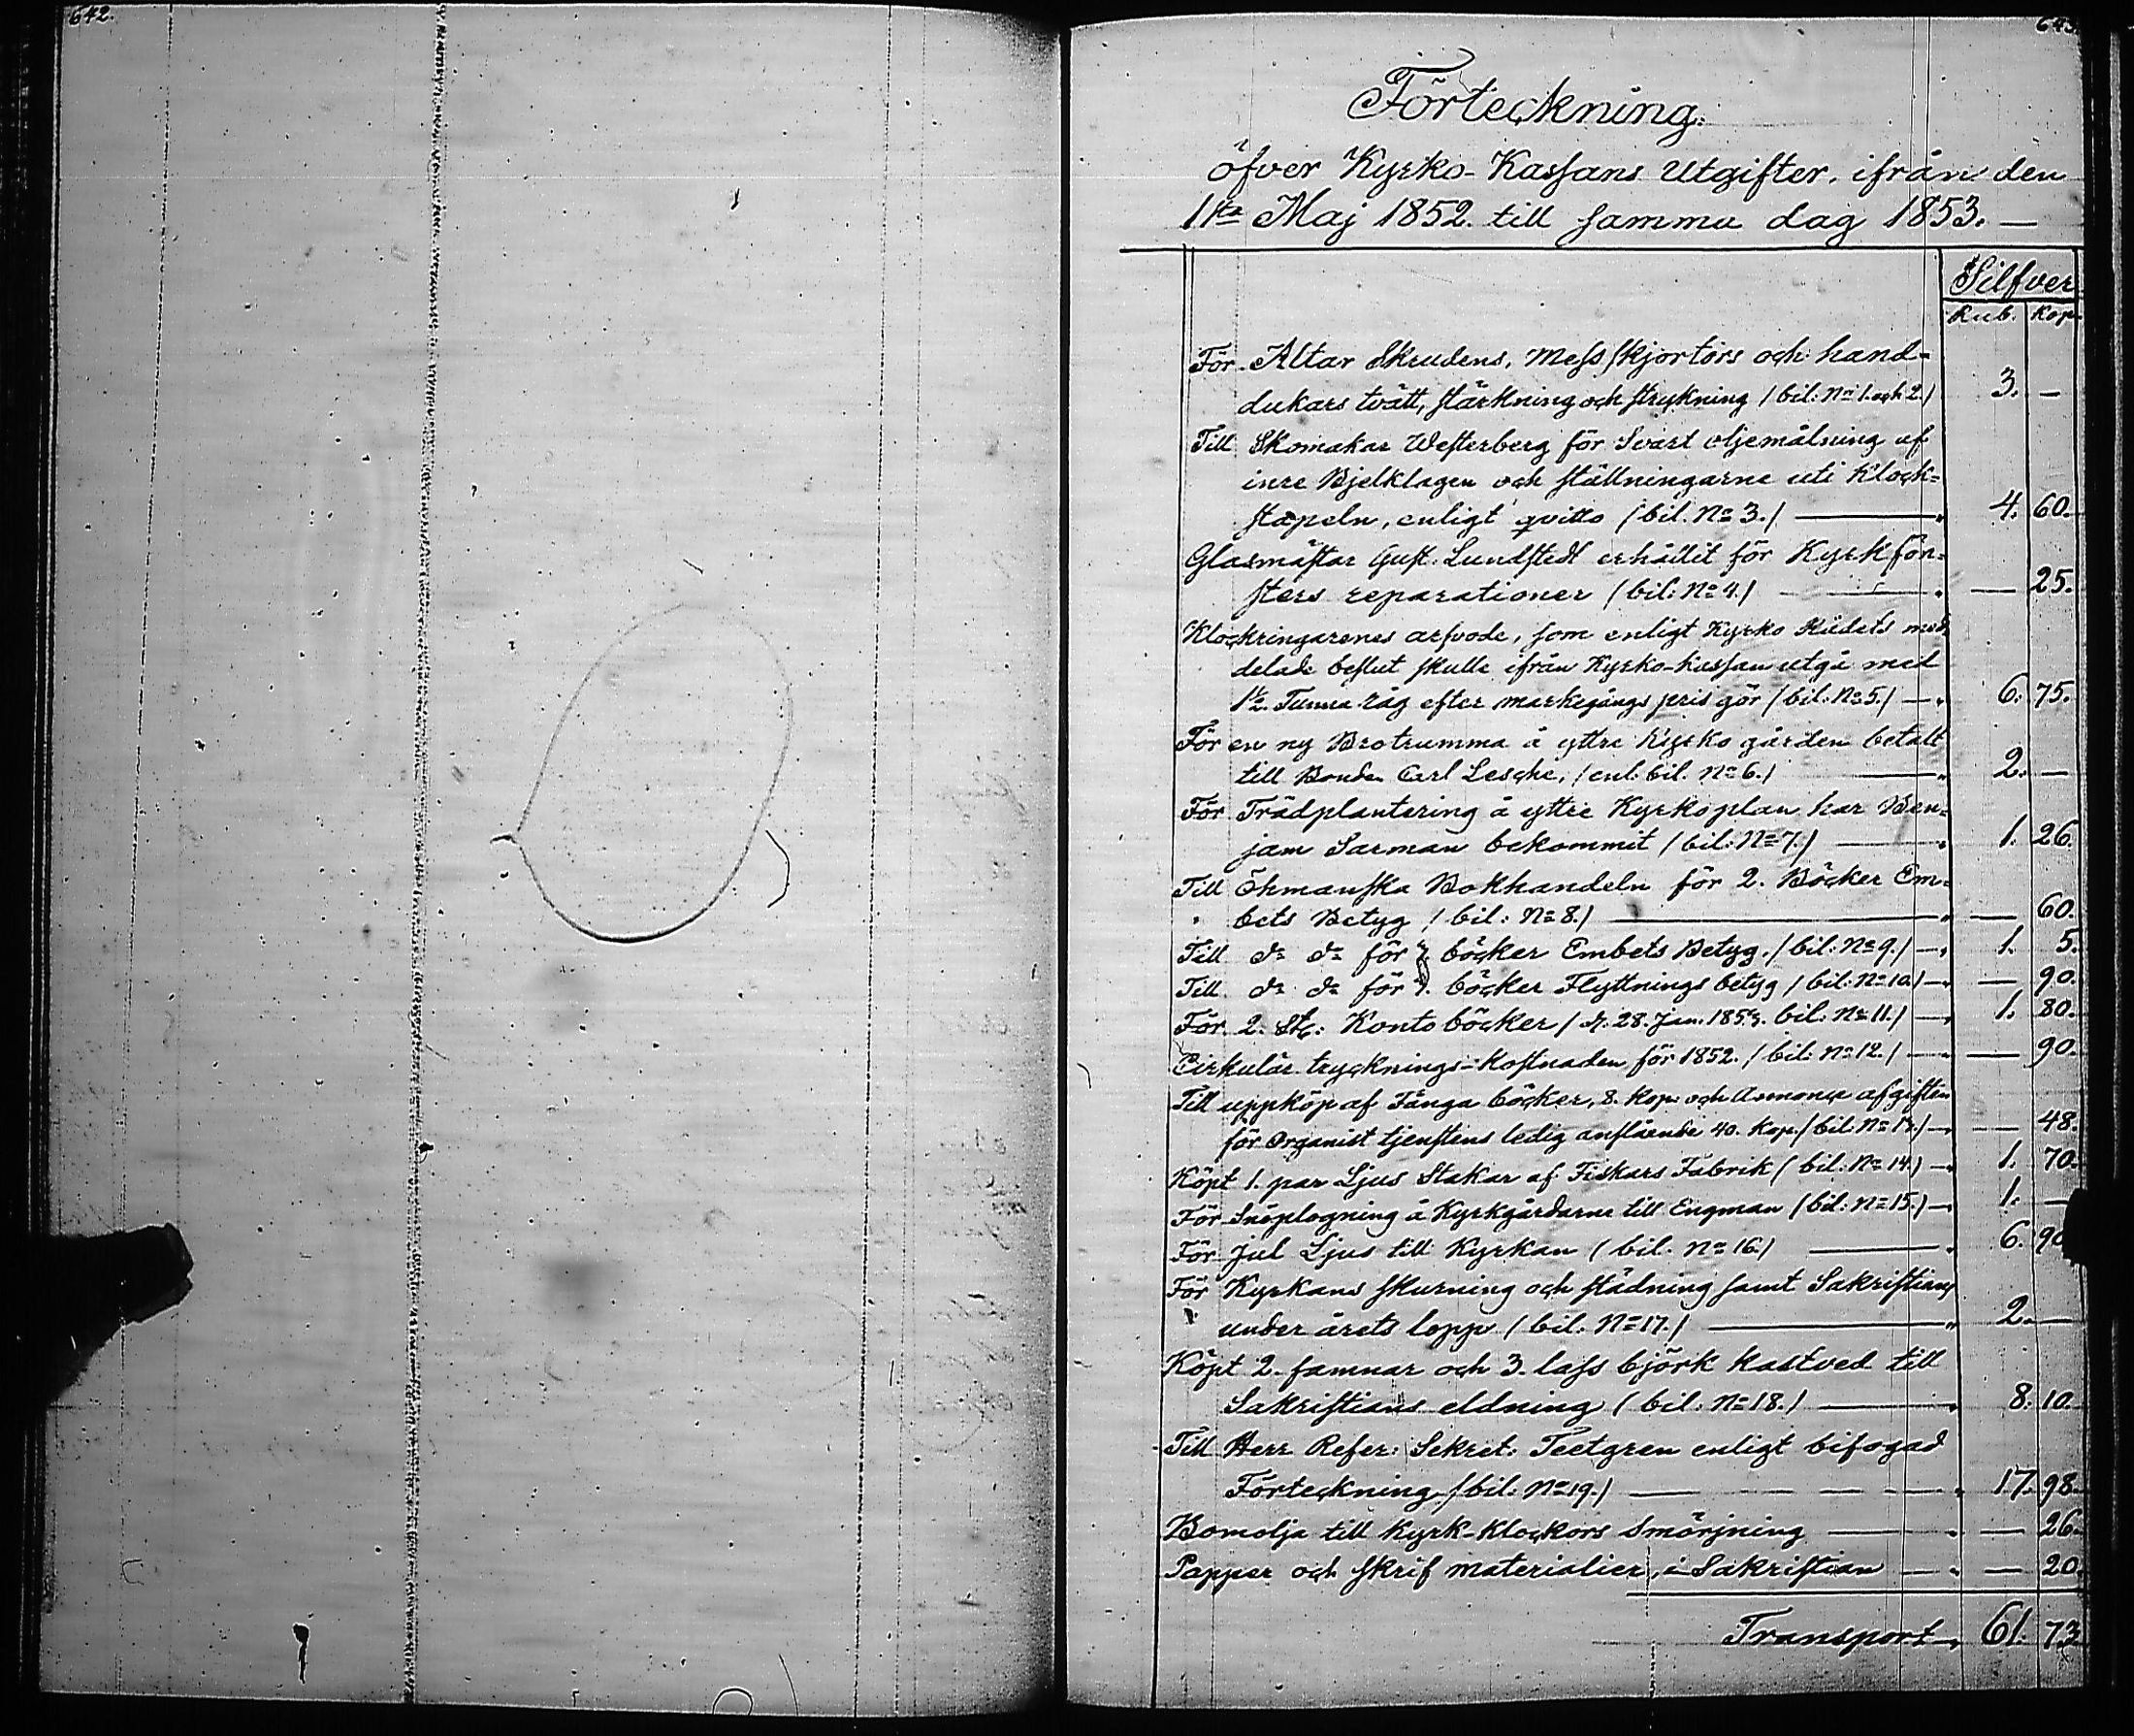 642.
643.
Förteckning
öfver Kyrko-Kassans Utgifter, ifrån den
1sta Maj 1852. till samma dag 1853. —
Silfver
Rub. Kop.
För Altar Skrudens, Messskjortors och hand-
dukars tvätt, stärkning och strykning /bil: No 1. och 2./ 3. —
Till Skomakar Westerberg för Svart oljemålning af
inre Bjelklagen och ställningarne uti Klock=
stapeln, enligt qvitto /bil. No 3./ — 4. 60.
Glasmästar Gust. Lundstedt erhållit för Kyrkfön=
sters reparationer /bil: No 4./ — — 25.
Klockringarenes arfvode, som enligt Kyrko Rådets med
delade beslut skulle ifrån Kyrko-kassan utgå med
1½ Tunna råg efter markegångs pris gör /bil: No 5./ — 6. 75.
För en ny Brotrumma å yttre Kyrko gården betalt
till Bonden Carl Lesche, /enl. bil. No 6./ — 2. —
För Trädplantering å yttre Kyrkoplan har Ben=
jam Sarman bekommit /bil: No 7./ — 1. 26.
Till Öhmanska Bokhandeln för 2. Böcker Em=
bets Betyg /bil: No 8./ — — 60.
Till do do för böcker Embets Betyg. /bil: No 9./ — 1. 5.
Till do do för böcker Flyttnings betyg /bil: No 10./ — — 90.
För 2. St: Kontoböcker /d. 28. Jan. 1853. bil: No 11./ — 1. 80.
Cirkulär trycknings=Kostnaden för 1852. /bil: No 12./ — — 90.
Till uppköp af Fånga böcker, 8. Kop. och Annonce afgiften
för Organist tjenstens ledig anslående 40. Kop. /bil: No 13./ — — 48.
Köpt 1. par Ljus Stakar af Fiskars Fabrik (bil: No 14.) — 1. 70.
För Snöplogning å Kyrkgårdarne till Engman (bil: No 15.) — 1. —
För Jul Ljus till Kyrkan (bil. No 16.) — 6. 90
För Kyrkans skurning och städning samt Sakristians
under årets lopp (bil: No 17.) — 2. —
Köpt 2. famnar och 3. lass björk kastved till
Sakristians eldning (bil: No 18.) — 8. 10.
Till Herr Refer: Sekret: Teetgren enligt bifogad
Förteckning /bil: No 19./ — 17. 98.
Bomolja till Kyrk-Klockors Smörjning — — 26.
Papper och skrif materialier, i Sakristian — — 20.
Transport, 61. 73